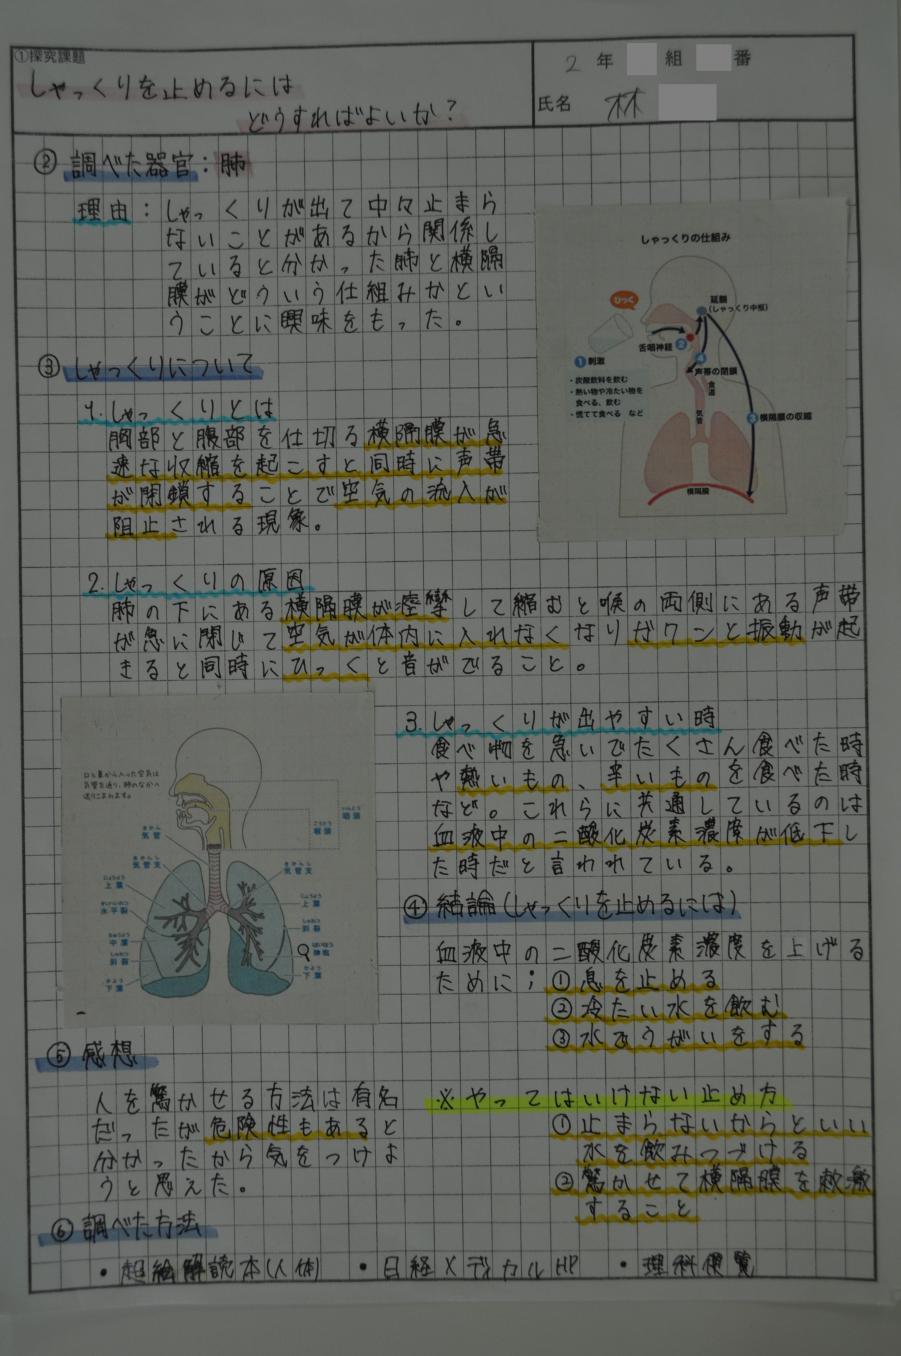 ①探究課題
しゃっくりを止めるには
どうすればよいか?
2 年 組 番
氏名 林
② 調べた器官：肺
理由：しゃっくりが出て中々止まら
ないことがあるから関係し
ていると分かった肺と横隔
膜がどういう仕組みかとい
うことに興味をもった。
しゃっくりの仕組み
ひっく
延髄
(しゃっくり中枢)
舌咽神経 2
1 刺激
・炭酸飲料を飲む
・熱い物や冷たい物を
食べる、飲む
・慌てて食べる など
4
声帯の閉鎖
食道
気管
3 横隔膜の収縮
横隔膜
③ しゃっくりについて
1. しゃっくりとは
胸部と腹部を仕切る横隔膜が急
速な収縮を起こすと同時に声帯
が閉鎖することで空気の流入が
阻止される現象。
2. しゃっくりの原因
肺の下にある横隔膜が痙攣して縮むと喉の両側にある声帯
が急に閉じて空気が体内に入れなくなりガクンと振動が起
きると同時にひっくと音がでること。
口と鼻から入った空気は
気管を通り、肺のなかへ
送りこまれます。
いんとう
咽頭
こうとう
喉頭
きかん
気管
きかんし
気管支
きかんし
気管支
じょうよう
上葉
すいへいれつ
水平裂
ちゅうよう
中葉
しゃれつ
斜裂
かよう
下葉
じょうよう
上葉
しゃれつ
斜裂
はいほう
肺胞
かよう
下葉
3. しゃっくりが出やすい時
食べ物を急いでたくさん食べた時
や熱いもの、辛いものを食べた時
など。これらに共通しているのは
血液中の二酸化炭素濃度が低下し
た時だと言われている。
④ 結論(しゃっくりを止めるには)
血液中の二酸化炭素濃度を上げる
ために；①息を止める
②冷たい水を飲む
③水でうがいをする
※やってはいけない止め方
①止まらないからといい
水を飲みつづける
②驚かせて横隔膜を刺激
すること
⑤ 感想
人を驚かせる方法は有名
だったが危険性もあると
分かったから気をつけよ
うと思えた。
⑥ 調べた方法
・超絵解読本(人体) ・日経メディカルHP ・理科便覧